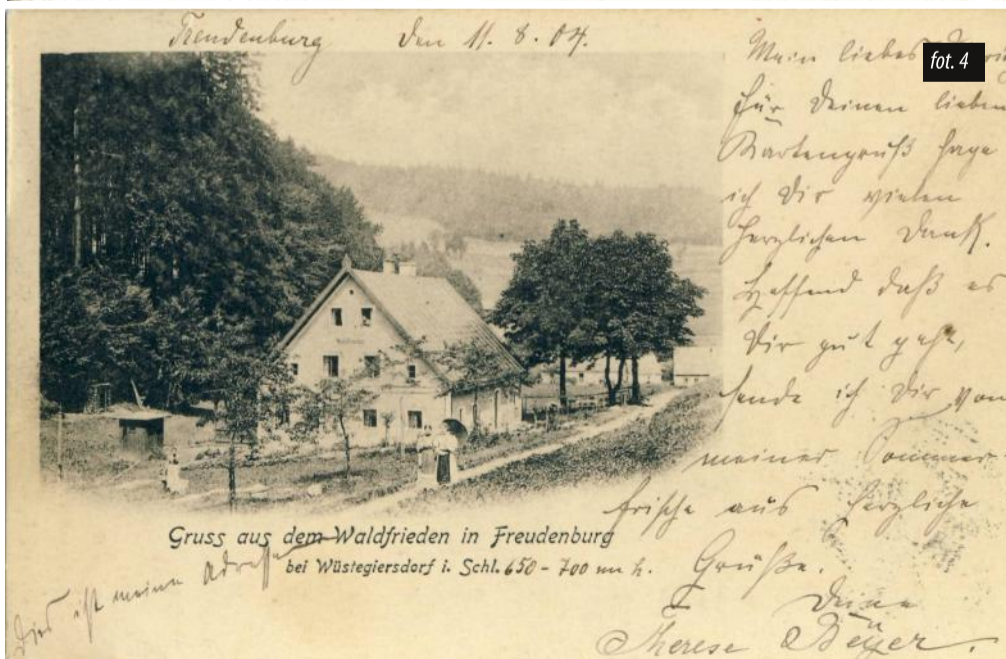 Freudenburg den 11. 8. 04.
fot. 4
Mein liebes
für Deinen lieben
Kartengruß sage
ich Dir vielen
herzlichen Dank.
Hoffend daß es
Dir gut geht,
sende ich Dir von
meiner Sommer
frische aus herzliche
Grüße.
Deine
Therese Beyer.
Gruss aus dem Waldfrieden in Freudenburg
bei Wüstegiersdorf i. Schl. 650 - 700 m h.
Dies ist meine Adresse